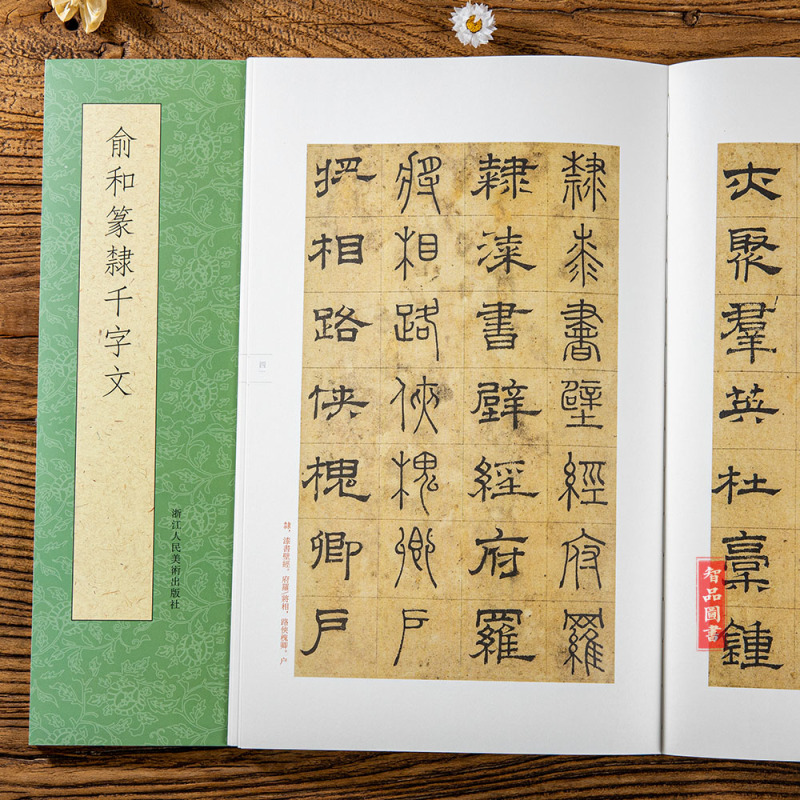 俞和篆隸千字文
浙江人民美術出版社
亦聚羣英杜稾鍾
隸漆書壁經府羅
隸漆書壁經府羅
將相路俠槐卿户
將相路俠槐卿户
隸。漆書壁經。府羅將相，路俠槐卿。户
四
智品圖書